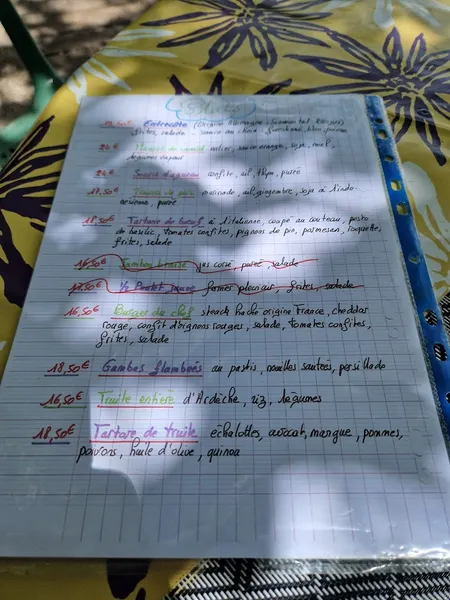 Entrecôte (origine Allemagne - Simmental
frites, salade
24€ Magret de canard entier, sauce orange, soja, miel,
légumes vapeur
24€ Souris d'agneau confite, ail, thym, purée
17,50€ marinade, ail, gingembre, soja à l'indo-
nésienne, purée
18,50€ Tartare de boeuf à l'italienne, coupé au couteau, pesto
de basilic, tomates confites, pignons de pin, parmesan, roquette,
frites, salade
16,50€ Jambon braisé jus corsé, purée, salade
17,50€ ½ Poulet jaune fermier plein air, frites, salade
16,50€ Burger du chef steack haché origine France, cheddar
rouge, confit d'oignons rouges, salade, tomates confites,
frites, salade
18,50€ Gambas flambées au pastis, nouilles sautées, persillade
16,50€ Truite entière d'Ardèche, riz, légumes
18,50€ Tartare de truite échalottes, avocat, mangue, pommes,
poivrons, huile d'olive, quinoa